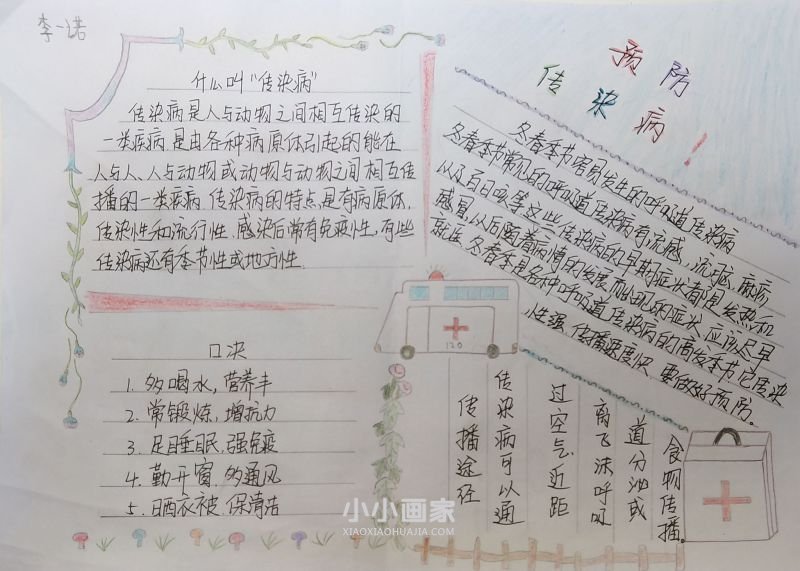 李一诺
什么叫"传染病"
传染病是人与动物之间相互传染的
一类疾病,是由各种病原体引起的能在
人与人、人与动物或动物与动物之间相互传
播的一类疾病 传染病的特点是有病原体,
传染性和流行性,感染后常有免疫性,有些
传染病还有季节性或地方性.
口决
1. 多喝水,营养丰
2. 常锻炼,增抗力
3. 足睡眠,强免疫
4. 勤开窗,多通风
5. 晒衣被,保清洁
预防
传染病!
冬春季节容易发生的呼吸道传染病
冬春季节常见的呼吸道传染病有流感,流脑,麻疹,
以及百日咳等这些传染病的早期症状看似发热和
感冒,以后随着病情的发展而出现的症状 应该尽早
就医.冬春季是各种呼吸道传染病的高发季节它传染
性强,传播速度快,要做好预防。
120
传播途径
传染病可以通
过空气近距
离飞沫呼吸
道分泌或
食物传播.
小小画家
XIAOXIAOHUAJIA.COM